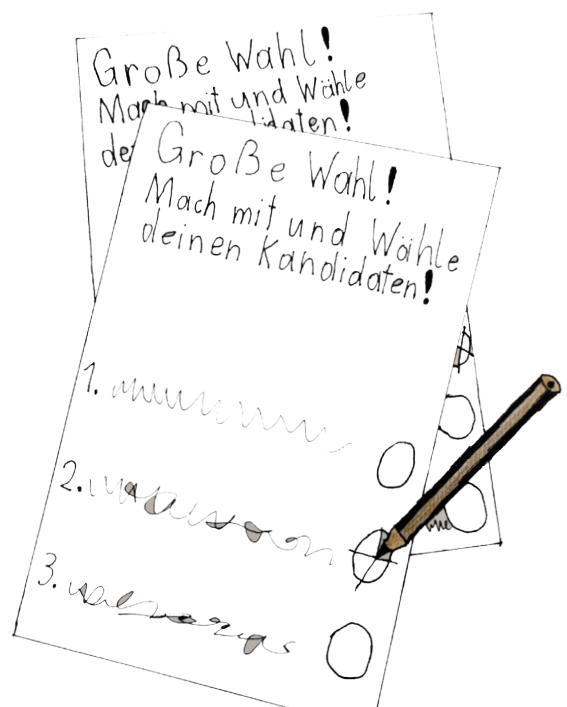 Große Wahl!
Mach mit und Wähle
de
Große Wahl!
Mach mit und Wähle
deinen Kandidaten!
1.
2.
3.